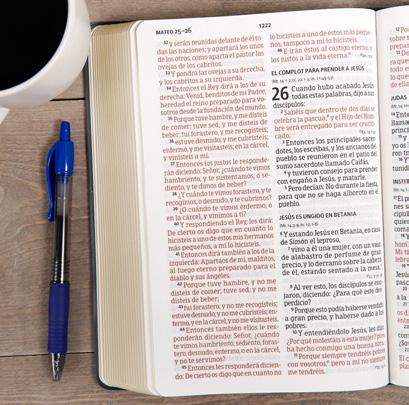 MATEO 25–26
1222
32 y serán reunidas delante de él to-
das las naciones; y apartará los unos
de los otros, como aparta el pastor las
ovejas de los cabritos.
33 Y pondrá las ovejas a su derecha,
y los cabritos a su izquierda.
34 Entonces el Rey dirá a los de su
derecha: Venid, benditos de mi Padre,
heredad el reino preparado para vo-
sotros desde la fundación del mundo.
35 Porque tuve hambre, y me disteis
de comer; tuve sed, y me disteis de
beber; fui forastero, y me recogisteis;
36 estuve desnudo, y me cubristeis;
enfermo, y me visitasteis; en la cárcel,
y vinisteis a mí.
37 Entonces los justos le responde-
rán diciendo: Señor, ¿cuándo te vimos
hambriento, y te sustentamos, o se-
diento, y te dimos de beber?
38 ¿Y cuándo te vimos forastero, y te
recogimos, o desnudo, y te cubrimos?
39 ¿O cuándo te vimos enfermo, o
en la cárcel, y vinimos a ti?
40 Y respondiendo el Rey, les dirá:
De cierto os digo que en cuanto lo
hicisteis a uno de estos mis hermanos
más pequeños, a mí lo hicisteis.
41 Entonces dirá también a los de la
izquierda: Apartaos de mí, malditos,
al fuego eterno preparado para el
diablo y sus ángeles.
42 Porque tuve hambre, y no me
disteis de comer; tuve sed, y no me
disteis de beber;
43 fui forastero, y no me recogisteis;
estuve desnudo, y no me cubristeis; en-
fermo, y en la cárcel, y no me visitasteis.
44 Entonces también ellos le res-
ponderán diciendo: Señor, ¿cuándo
te vimos hambriento, sediento, foras-
tero, desnudo, enfermo, o en la cárcel,
y no te servimos?
45 Entonces les responderá diciendo:
De cierto os digo que en cuanto no
lo hicisteis a uno de estos más peque-
ños, tampoco a mí lo hicisteis.
46 E irán éstos al castigo eterno, y
los justos a la vida eterna.
EL COMPLOT PARA PRENDER A JESÚS
26 Cuando hubo acabado Jesús
todas estas palabras, dijo a sus
discípulos:
2 Sabéis que dentro de dos días se
celebra la pascua, y el Hijo del Hom-
bre será entregado para ser cruci-
cado.
3 Entonces los principales sacer-
dotes, los escribas, y los ancianos del
pueblo se reunieron en el patio del
sumo sacerdote llamado Caifás,
4 y tuvieron consejo para prender
con engaño a Jesús, y matarle.
5 Pero decían: No durante la fiesta,
para que no se haga alboroto en el
pueblo.
JESÚS ES UNGIDO EN BETANIA
6 Y estando Jesús en Betania, en casa
de Simón el leproso,
7 vino a él una mujer, con un vaso
de alabastro de perfume de gran
precio, y lo derramó sobre la cabeza
de él, estando sentado a la mesa.
8 Al ver esto, los discípulos se eno-
jaron, diciendo: ¿Para qué este des-
perdicio?
9 Porque esto podía haberse vendido
a gran precio, y haberse dado a los
pobres.
10 Y entendiéndolo Jesús, les dijo:
¿Por qué molestáis a esta mujer? pues
ha hecho conmigo una buena obra.
11 Porque siempre tendréis pobres
con vosotros, pero a mí no siempre
me tendréis.
JUDAS